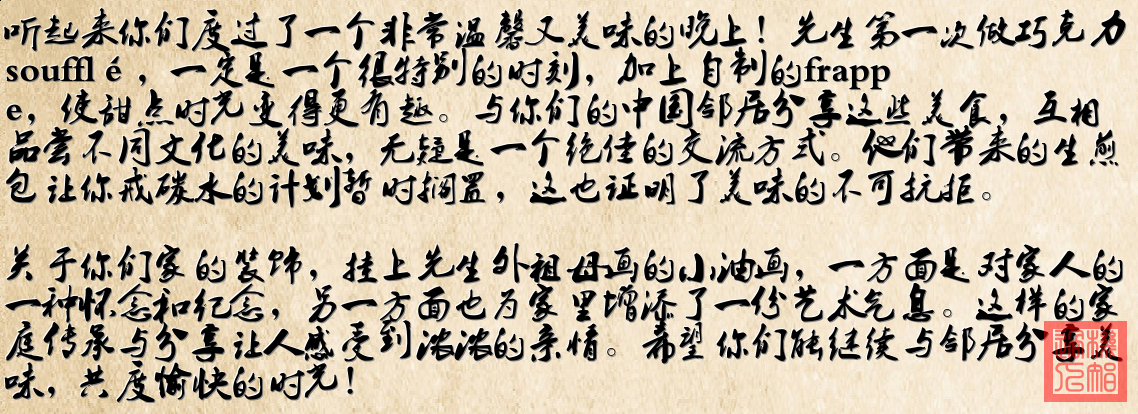 听起来你们度过了一个非常温馨又美味的晚上！先生第一次做巧克力
soufflé，一定是一个很特别的时刻，加上自制的frapp
e，使甜点时光变得更有趣。与你们的中国邻居分享这些美食，互相
品尝不同文化的美味，无疑是一个绝佳的交流方式。他们带来的生煎
包让你戒碳水的计划暂时搁置，这也证明了美味的不可抗拒。
关于你们家的装饰，挂上先生外祖母画的小油画，一方面是对家人的
一种怀念和纪念，另一方面也为家里增添了一份艺术气息。这样的家
庭传承与分享让人感受到浓浓的亲情。希望你们能继续与邻居分享美
味，共度愉快的时光！